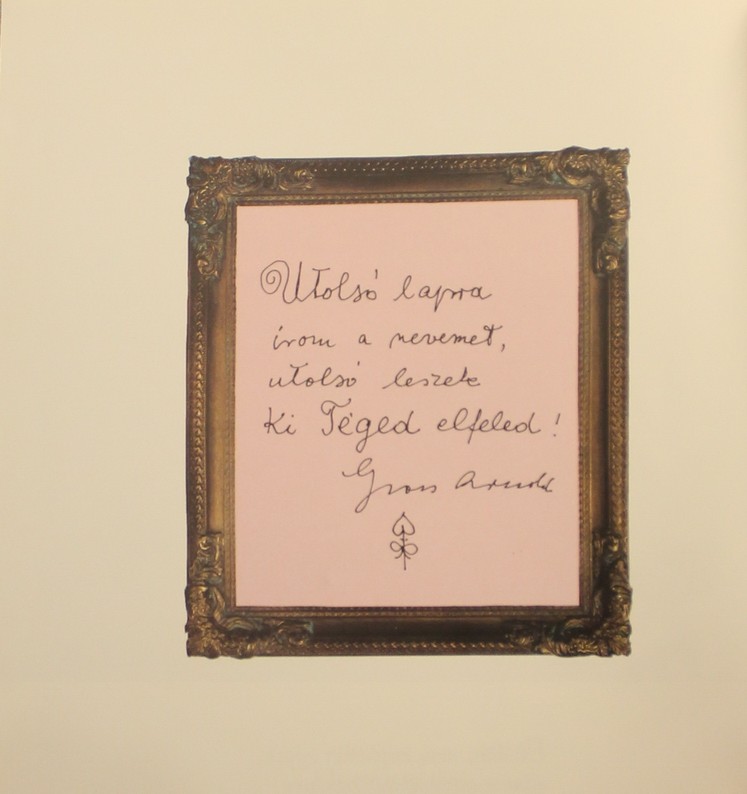 Utolsó lapra
írom a nevemet,
utolsó leszek
ki Téged elfeled!
Gross Arnold